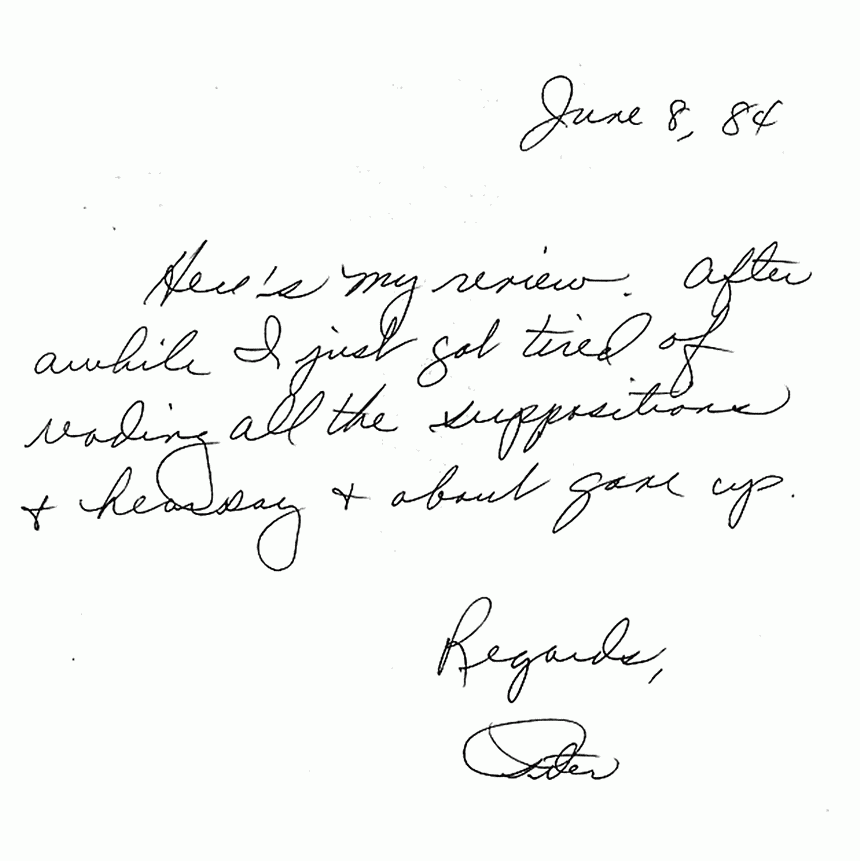 June 8, 84
Here's my review. After
awhile I just got tired of
reading all the suppositions
& hearsay & about gave up.
Regards,
Peter